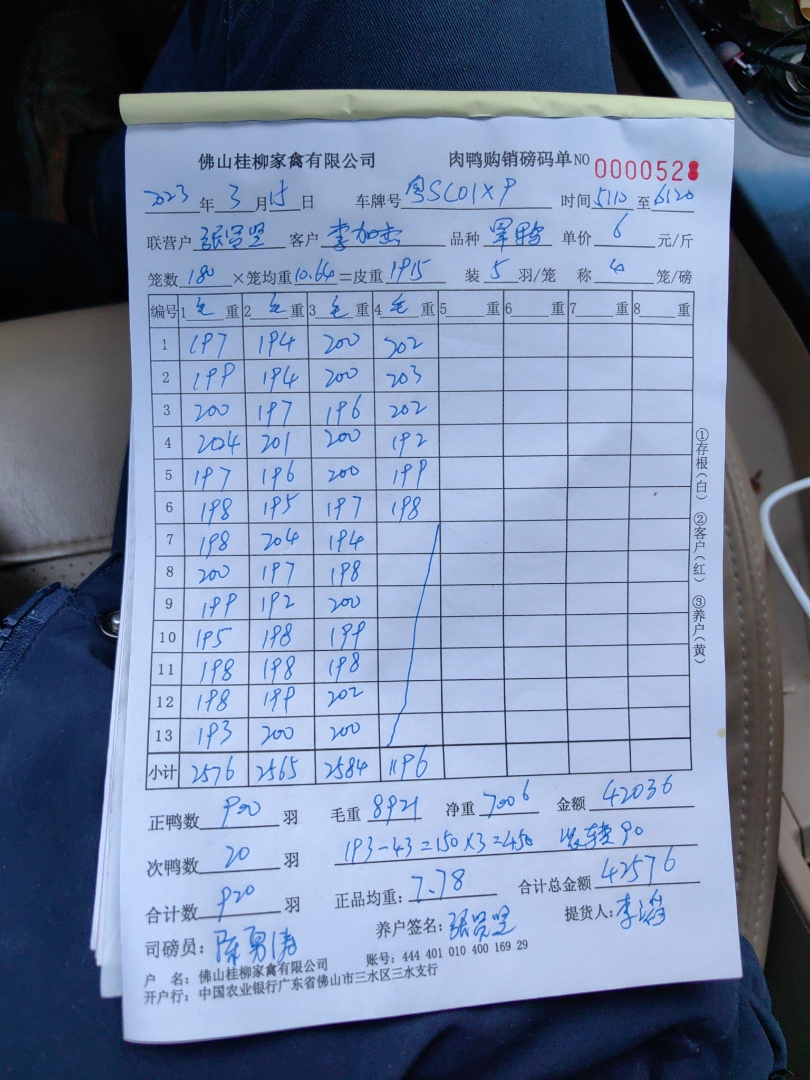 佛山桂柳家禽有限公司 肉鸭购销磅码单 NO 0000528
2023年3月15日 车牌号粤SC01X9 时间5:10至6:20
联营户张贤坚 客户李加杰 品种 单价6元/斤
笼数180×笼均重10.64=皮重1915 装5羽/笼 称4笼/磅
编号 1毛重 2毛重 3毛重 4毛重 5重 6重 7重 8重
1 197 194 200 202
2 199 194 200 203
3 200 197 196 202
4 204 201 200 192
5 197 196 200 199
6 198 195 197 198
7 198 204 194
8 200 197 198
9 199 192 200
10 195 198 199
11 198 198 198
12 198 199 202
13 193 200 200
小计 2576 2565 2584 1196
正鸭数900羽 毛重8921 净重7006 金额42036
次鸭数20羽 193-43=150×3=450 装车90
合计数920羽 正品均重:7.78 合计总金额42576
司磅员:陈勇涛 养户签名:张贤坚 提货人:李
户 名:佛山桂柳家禽有限公司 账号:444 401 010 400 169 29
开户行:中国农业银行广东省佛山市三水区三水支行
①存根(白) ②客户(红) ③养户(黄)